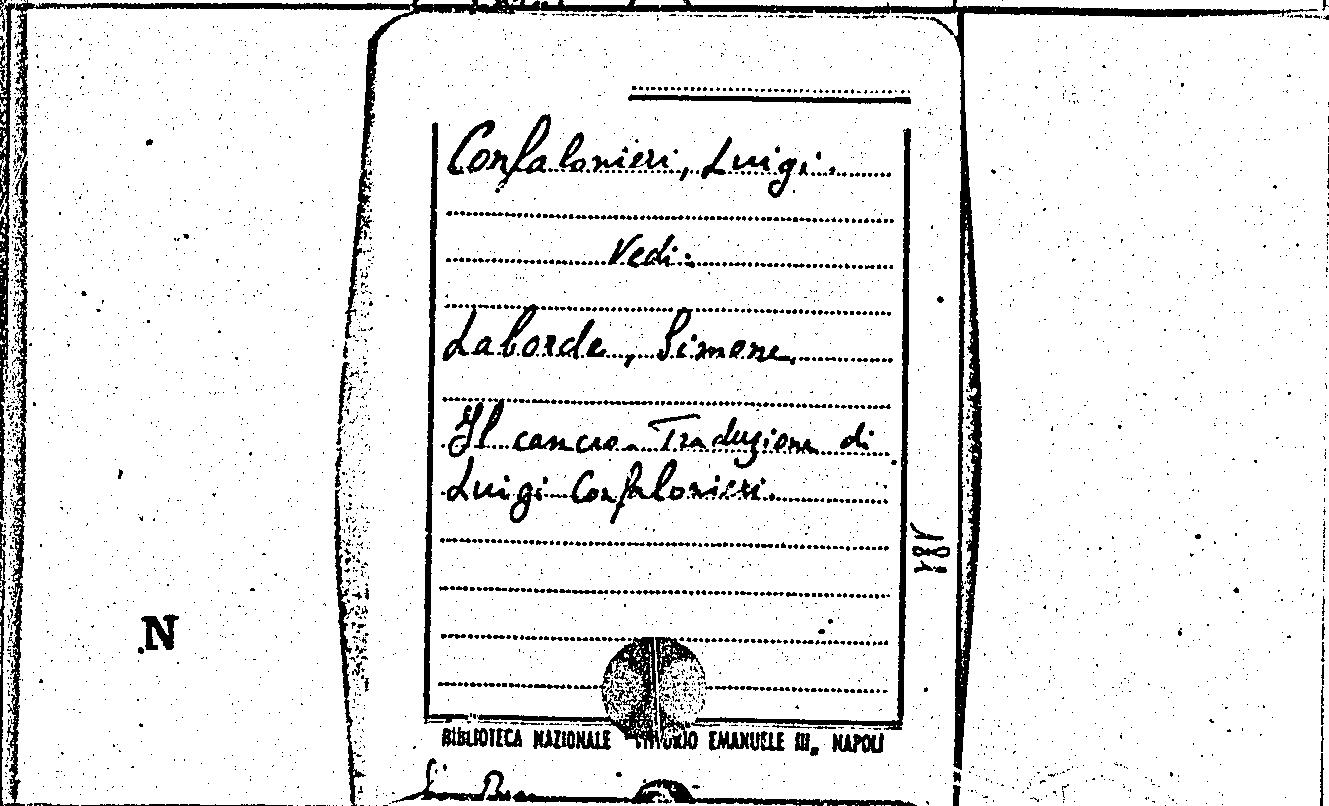 Confalonieri, Luigi.
Vedi:
Laborde, Simone.
Il cancro. Traduzione di
Luigi Confalonieri.
N
BIBLIOTECA NAZIONALE VITTORIO EMANUELE III, NAPOLI